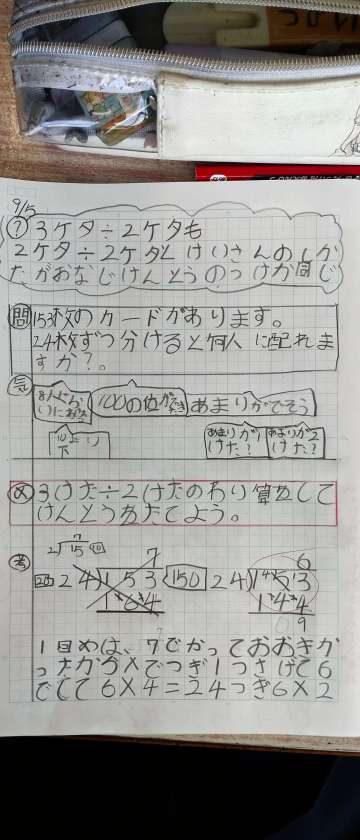 9/5
？ 3ケタ÷2ケタも
2ケタ÷2ケタと けいさんのしか
たがおなじけんとうのつけか同じ
問 153枚のカードがあります。
24枚ずつ分けると何人に配れま
すか？。
気 100の位ができ あまりがでそう
あまりが1けた？ あまりが2けた？
め 3けた÷2けたのわり算をして
けんとうをたてよう。
考
7
2)15
7
24)153
164
150
6
24)153
144
9
1回めは、7でかっておおきか
ったから×でつぎ1つさげて6
でてて6×4=24つぎ6×2